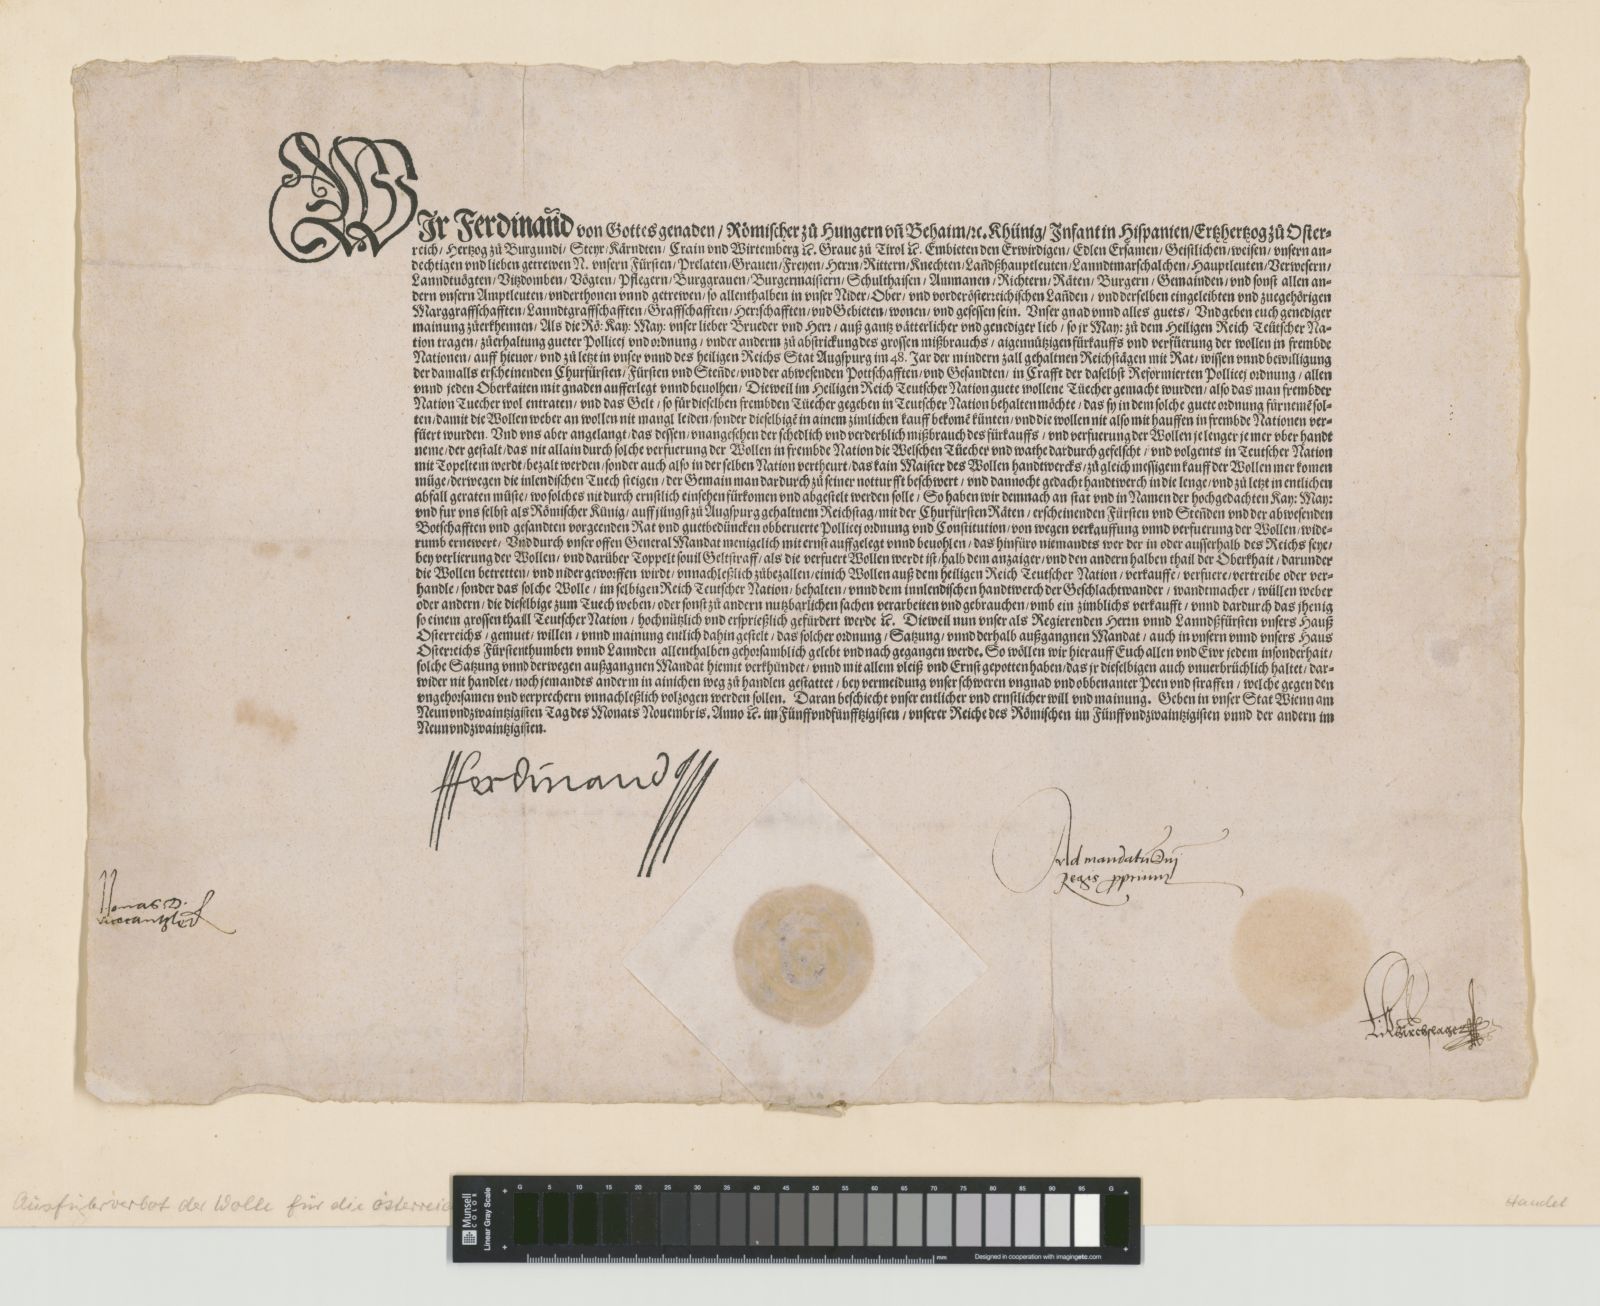 WIr Ferdinañd von Gottes genaden / Römischer zů Hungern vñ Behaim / ꝛc. Khünig / Infant in Hispanien / Ertzhertzog zů Oster-
reich / Hertzog zů Burgundi / Steyr / Kärndten / Crain vnd Wirtemberg ꝛc. Graue zů Tirol ꝛc. Embieten den Erwirdigen / Edlen Ersamen / Geistlichen / weisen / vnsern an-
dechtigen vnd lieben getrewen N. vnsern Fürsten / Prelaten / Grauen / Freyen / Herrn / Rittern / Knechten / Lañdßhauptleuten / Lanndtmarschalchen / Hauptleuten / Verwesern /
Lanndtuögten / Vitzdomben / Vögten / Pflegern / Burggrauen / Burgermaistern / Schulthaisen / Ammanen / Richtern / Räten / Burgern / Gemainden / vnd sonst allen an-
dern vnsern Amptleuten / vnderthonen vnnd getrewen / so allenthalben in vnser Nider / Ober / vnd vorderösterreichischen Lañden / vnd derselben eingeleibten vnd zuegehörigen
Marggraffschafften / Lanndtgraffschafften / Graffschafften / Herrschafften / vnd Gebieten / wonen / vnd gesessen sein. Vnser gnad vnnd alles guets / Vnd geben euch genediger
mainung zůerkhennen / Als die Rö: Kay: May: vnser lieber Brueder vnd Herr / auß gantz vätterlicher vnd genediger lieb / so jr May: zů dem Heiligen Reich Teütscher Na-
tion tragen / zůerhaltung gueter Pollicej vnd ordnung / vnder anderm zů abstrickung des grossen mißbrauchs / aigennützigen fürkauffs vnd verfüerung der wollen in frembde
Nationen / auff hieuor / vnd zů letzt in vnser vnnd des heiligen Reichs Stat Augspurg im 48. Jar der mindern zall gehaltnen Reichstägen mit Rat / wissen vnnd bewilligung
der damalls erscheinenden Churfürsten / Fürsten vnd Stende / vnd der abwesenden Pottschafften / vnd Gesandten / in Crafft der daselbst Reformierten Pollicej ordnung / allen
vnnd jeden Oberkaiten mit gnaden aufferlegt vnnd beuolhen / Dieweil im Heiligen Reich Teutscher Nation guete wollene Tüecher gemacht wurden / also das man frembder
Nation Tuecher wol entraten / vnd das Gelt / so für dieselben frembden Tüecher gegeben in Teutscher Nation behalten möchte / das sy in dem solche guete ordnung fürnemē sol-
ten / damit die Wollen weber an wollen nit mangl leiden / sonder dieselbigē in ainem zimlichen kauff bekomē künten / vnd die wollen nit also mit hauffen in frembde Nationen ver-
füert wurden. Vnd vns aber angelangt / das dessen / vnangesehen der schedlich vnd verderblich mißbrauch des fürkauffs / vnd verfuerung der Wollen je lenger je mer vber handt
neme / der gestalt / das nit allain durch solche verfuerung der Wollen in frembde Nation die Welschen Tüecher vnd wathe dardurch gefelscht / vnd volgents in Teutscher Nation
mit Topeltem werdt / bezalt werden / sonder auch also in derselben Nation vertheurt / das kain Maister des Wollen handtwercks / zů gleich messigem kauff der Wollen mer komen
müge / derwegen die inlendischen Tuech steigen / der Gemain man dardurch zů seiner notturfft beschwert / vnd dannocht gedacht handtwerch in die lenge / vnd zů letzt in entlichen
abfall geraten müste / wo solches nit durch ernstlich einsehen fürkomen vnd abgestelt werden solle / So haben wir demnach an stat vnd in Namen der hochgedachten Kay: May:
vnd fur vns selbst als Römischer Künig / auff jüngst zů Augspurg gehaltnem Reichstag / mit der Churfürsten Räten / erscheinenden Fürsten vnd Stenden vnd der abwesenden
Botschafften vnd gesandten vorgeenden Rat vnd guetbedüncken obberuerte Pollicej ordnung vnd Constitution / von wegen verkauffung vnnd verfuerung der Wollen / wide-
rumb ernewert / Vnd durch vnser offen General Mandat menigelich mit ernst auffgelegt vnnd beuohlen / das hinfüro niemandts wer der in oder ausserhalb des Reichs seye /
bey verlierung der Wollen / vnd darüber Toppelt souil Geltstraff / als die verfuert Wollen werdt ist / halb dem anzaiger / vnd den andern halben thail der Oberkhait / darunder
die Wollen betretten / vnd nidergeworffen wirdt / vnnachleßlich zůbezallen / einich Wollen auß dem heiligen Reich Teutscher Nation / verkauffe / verfuere / vertreibe oder ver-
handle / sonder das solche Wolle / im selbigen Reich Teutscher Nation / behalten / vnnd dem innlendischen handtwerch der Geschlachtwander / wandtmacher / wüllen weber
oder andern / die dieselbige zum Tuech weben / oder sonst zů andern nutzbarlichen sachen verarbeiten vnd gebrauchen / vmb ein zimblichs verkaufft / vnnd dardurch das jhenig
so einem grossen thaill Teutscher Nation / hochnützlich vnd ersprießlich gefürdert werde ꝛc. Dieweil nun vnser als Regierenden Herrn vnnd Lanndßfürsten vnsers Hauß
Osterreichs / gemuet / willen / vnnd mainung entlich dahin gestelt / das solcher ordnung / Satzung / vnnd derhalb außgangnen Mandat / auch in vnsern vnnd vnsers Haus
Osterreichs Fürstenthumben vnnd Lannden allenthalben gehorsamblich gelebt vnd nach gegangen werde. So wöllen wir hierauff Euch allen vnd Ewr jedem insonderhait /
solche Satzung vnnd derwegen außgangnen Mandat hiemit verkhündet / vnnd mit allem vleiß vnd Ernst gepotten haben / das jr dieselbigen auch vnuerbrüchlich haltet / dar-
wider nit handlet / noch jemandts anderm in ainichen weg zů handlen gestattet / bey vermeidung vnser schweren vngnad vnd obbenanter Peen vnd straffen / welche gegen den
vngehorsamen vnd verprechern vnnachleßlich volzogen werden sollen. Daran beschiecht vnser entlicher vnd ernstlicher will vnd mainung. Geben in vnser Stat Wienn am
Neunvndzwaintzigisten Tag des Monats Nouembris. Anno ꝛc. im Fünffvndfünfftzigisten / vnserer Reiche des Römischen im Fünffvndzwaintzigisten vnnd der andern im
Neunvndzwaintzigisten.
Ferdinand
Ad mandatū Dnj
Regis ꝓprium
Jonas D.
vicecantzler
Ausfuhrverbot der Wolle für die österreic
Handel
Munsell
COLOR
Linear Gray Scale
G 5 10 15 20 25 30 35 40 45 50 55 60 65 70 75 80 85 90 95 G
mm
Designed in cooperation with imagingetc.com